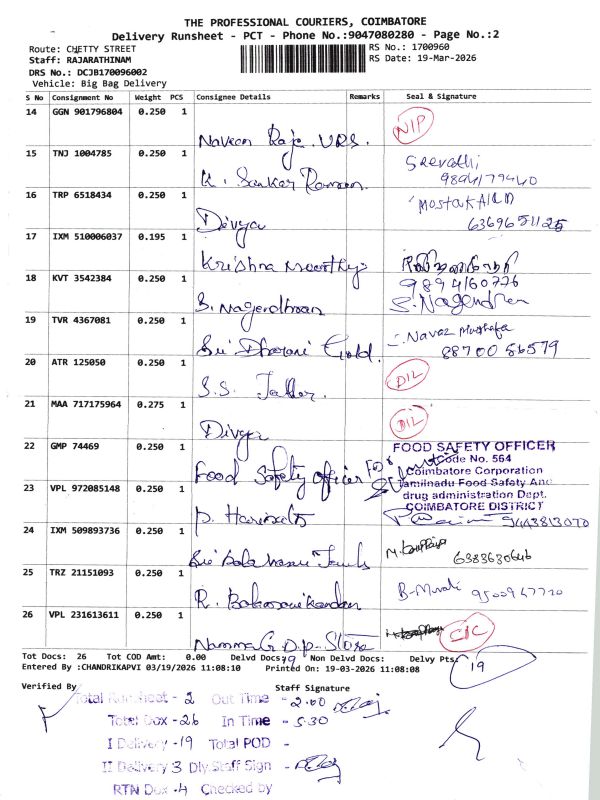 THE PROFESSIONAL COURIERS, COIMBATORE
Delivery Runsheet - PCT - Phone No.:9047080280 - Page No.:2
Route: CHETTY STREET RS No.: 1700960
Staff: RAJARATHINAM RS Date: 19-Mar-2026
DRS No.: DCJB170096002
Vehicle: Big Bag Delivery
S No Consignment No Weight PCS Consignee Details Remarks Seal & Signature
14 GGN 901796804 0.250 1
Naveen Raje. VRS. NIP
15 TNJ 1004785 0.250 1
K. Sankar Raman
9894179440
16 TRP 6518434 0.250 1
Divya
17 IXM 510006037 0.195 1
Krishna Moorthy
18 KVT 3542384 0.250 1 9894160776
S. Nagendhran S. Nagendran
19 TVR 4367081 0.250 1
Sri Dharani Gold. Navaz Musthafa
88700 86579
20 ATR 125050 0.250 1 DIL
S.S.
21 MAA 717175964 0.275 1
Divya DIL
22 GMP 74469 0.250 1 FOOD SAFETY OFFICER
Code No. 564
Food Safety Officer For Coimbatore Corporation
23 VPL 972085148 0.250 1 Tamilnadu Food Safety And
drug administration Dept.
COIMBATORE DISTRICT
P. 9443813070
24 IXM 509893736 0.250 1
Sri Bala 6383630646
25 TRZ 21151093 0.250 1
R. B. Murali
26 VPL 231613611 0.250 1
Namma G.D.P. Store CIC
Tot Docs: 26 Tot COD Amt: 0.00 Delvd Docs: 19 Non Delvd Docs: Delvy Pts: 19
Entered By :CHANDRIKAPVI 03/19/2026 11:08:10 Printed On: 19-03-2026 11:08:08
Verified By Staff Signature
Total Runsheet - 2 Out Time - 2.00
Total Dox - 26 In Time - 5.30
I Delivery - 19 Total POD -
II Delivery 3 Dly.Staff Sign -
RTN Dox - 4 Checked by